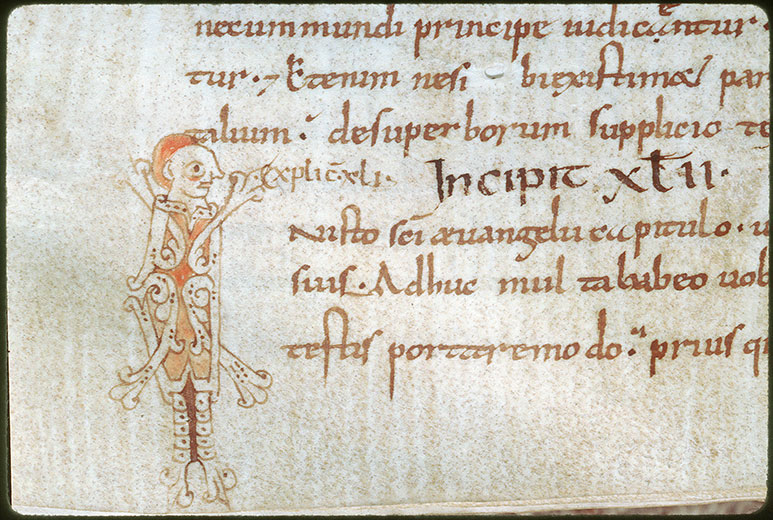 necummundi principe iudicantur.
tur. ⁊ &enim nisi biexistimæ par
talium. desuperborum supplicio te
explic̄. xli.
Incipit xlii.
Nisto sc̄i æuangelii capitulo. u
suis. Adhuc multa habeo uob
testis portaremodo. prius qu